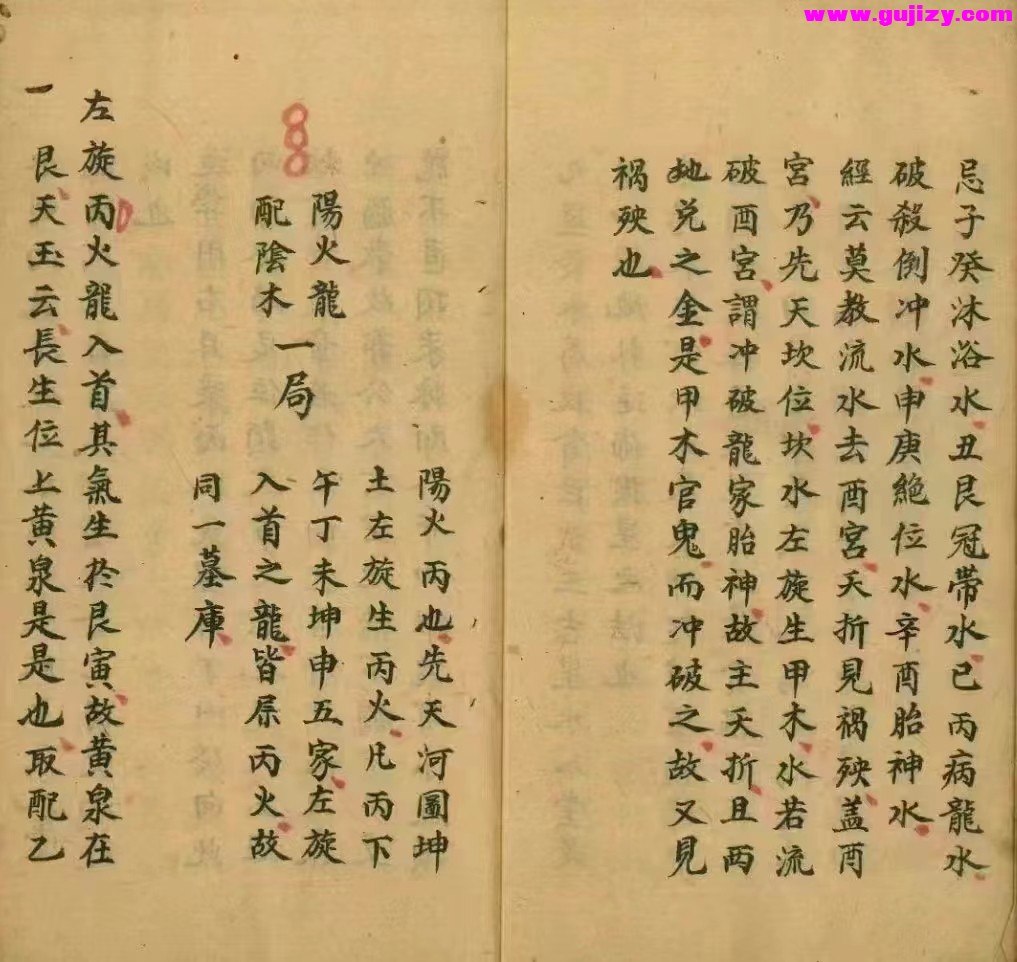 www.gujizy.com
忌子癸沐浴水丑艮冠帶水巳丙病龍水
破殺倒冲水申庚絶位水辛酉胎神水
經云莫教流水去酉宮夭折見禍殃盖酉
宮乃先天坎位坎水左旋生甲木水若流
破酉宮謂冲破龍家胎神故主夭折且酉
地兑之金是甲木官鬼而冲破之故又見
禍殃也
陽火丙也先天河圖坤
土左旋生丙火凡丙下
午丁未坤申五家左旋
入首之龍皆屬丙火故
同一墓庫
陽火龍
配陰木
一局
左旋丙火龍入首其氣生於艮寅故黄泉在
一艮天玉云長生位上黄泉是是也取配乙